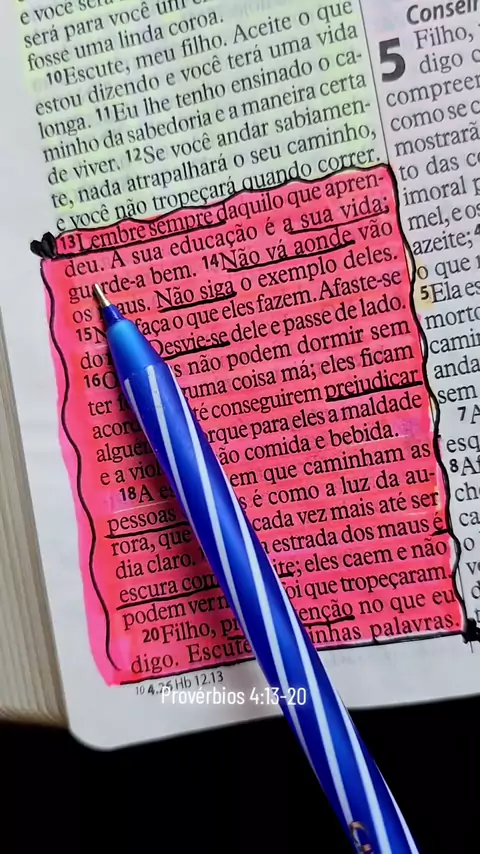 e você será
será para você um
fosse uma linda coroa.
10Escute, meu filho. Aceite o que
estou dizendo e você terá uma vida
longa. 11Eu lhe tenho ensinado o ca-
minho da sabedoria e a maneira certa
de viver. 12Se você andar sabiamen-
te, nada atrapalhará o seu caminho,
e você não tropeçará quando correr.
13Lembre sempre daquilo que apren-
deu. A sua educação é a sua vida;
guarde-a bem. 14Não vá aonde vão
os maus. Não siga o exemplo deles.
15N faça o que eles fazem. Afaste-se
do Desvie-se dele e passe de lado.
16O s não podem dormir sem
ter f uma coisa má; eles ficam
acor té conseguirem prejudicar
algué rque para eles a maldade
e a viol ão comida e bebida.
18A es em que caminham as
pessoas s é como a luz da au-
rora, que cada vez mais até ser
dia claro. estrada dos maus é
escura com ite; eles caem e não
podem ver n oi que tropeçaram.
20Filho, pr enção no que eu
digo. Escute inhas palavras.
10 4.26 Hb 12.13
Conselh
5 Filho,
digo c
compreen
como se c
mostrará
to das co
imoral p
mel, e os
azeite; 4
o que r
5Ela es
morto
cami
anda
sem
7A
esq
8Af
ch
ca
o
v
d
Provérbios 4:13-20